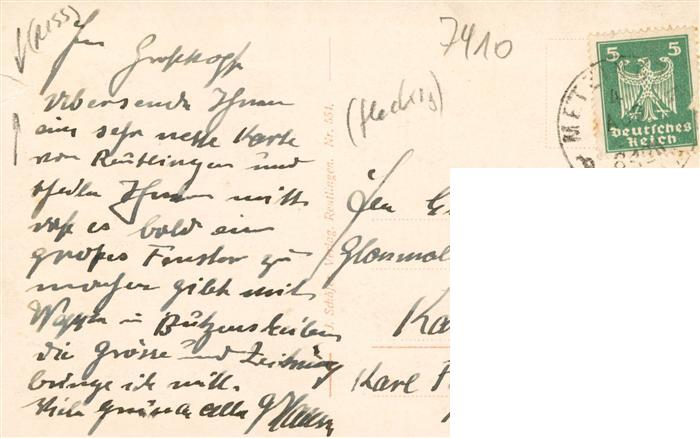 (RISS)
Hr. Groskopf
Übersende Ihnen
eine sehr nette Karte
von Reutlingen und
theile Ihnen mitt
daß es bald ein
großes Fenster zu
machen gibt mit
Wappen u Butzenscheiben
die Grösse und Zeichnung
bringe ich mitt.
Viele Grüsse alle
7410
(fleckig)
J. Schäf Verlag, Reutlingen. Nr. 551.
5 5
Deutsches
Reich
METZ
Glasmal
Ka
Karl